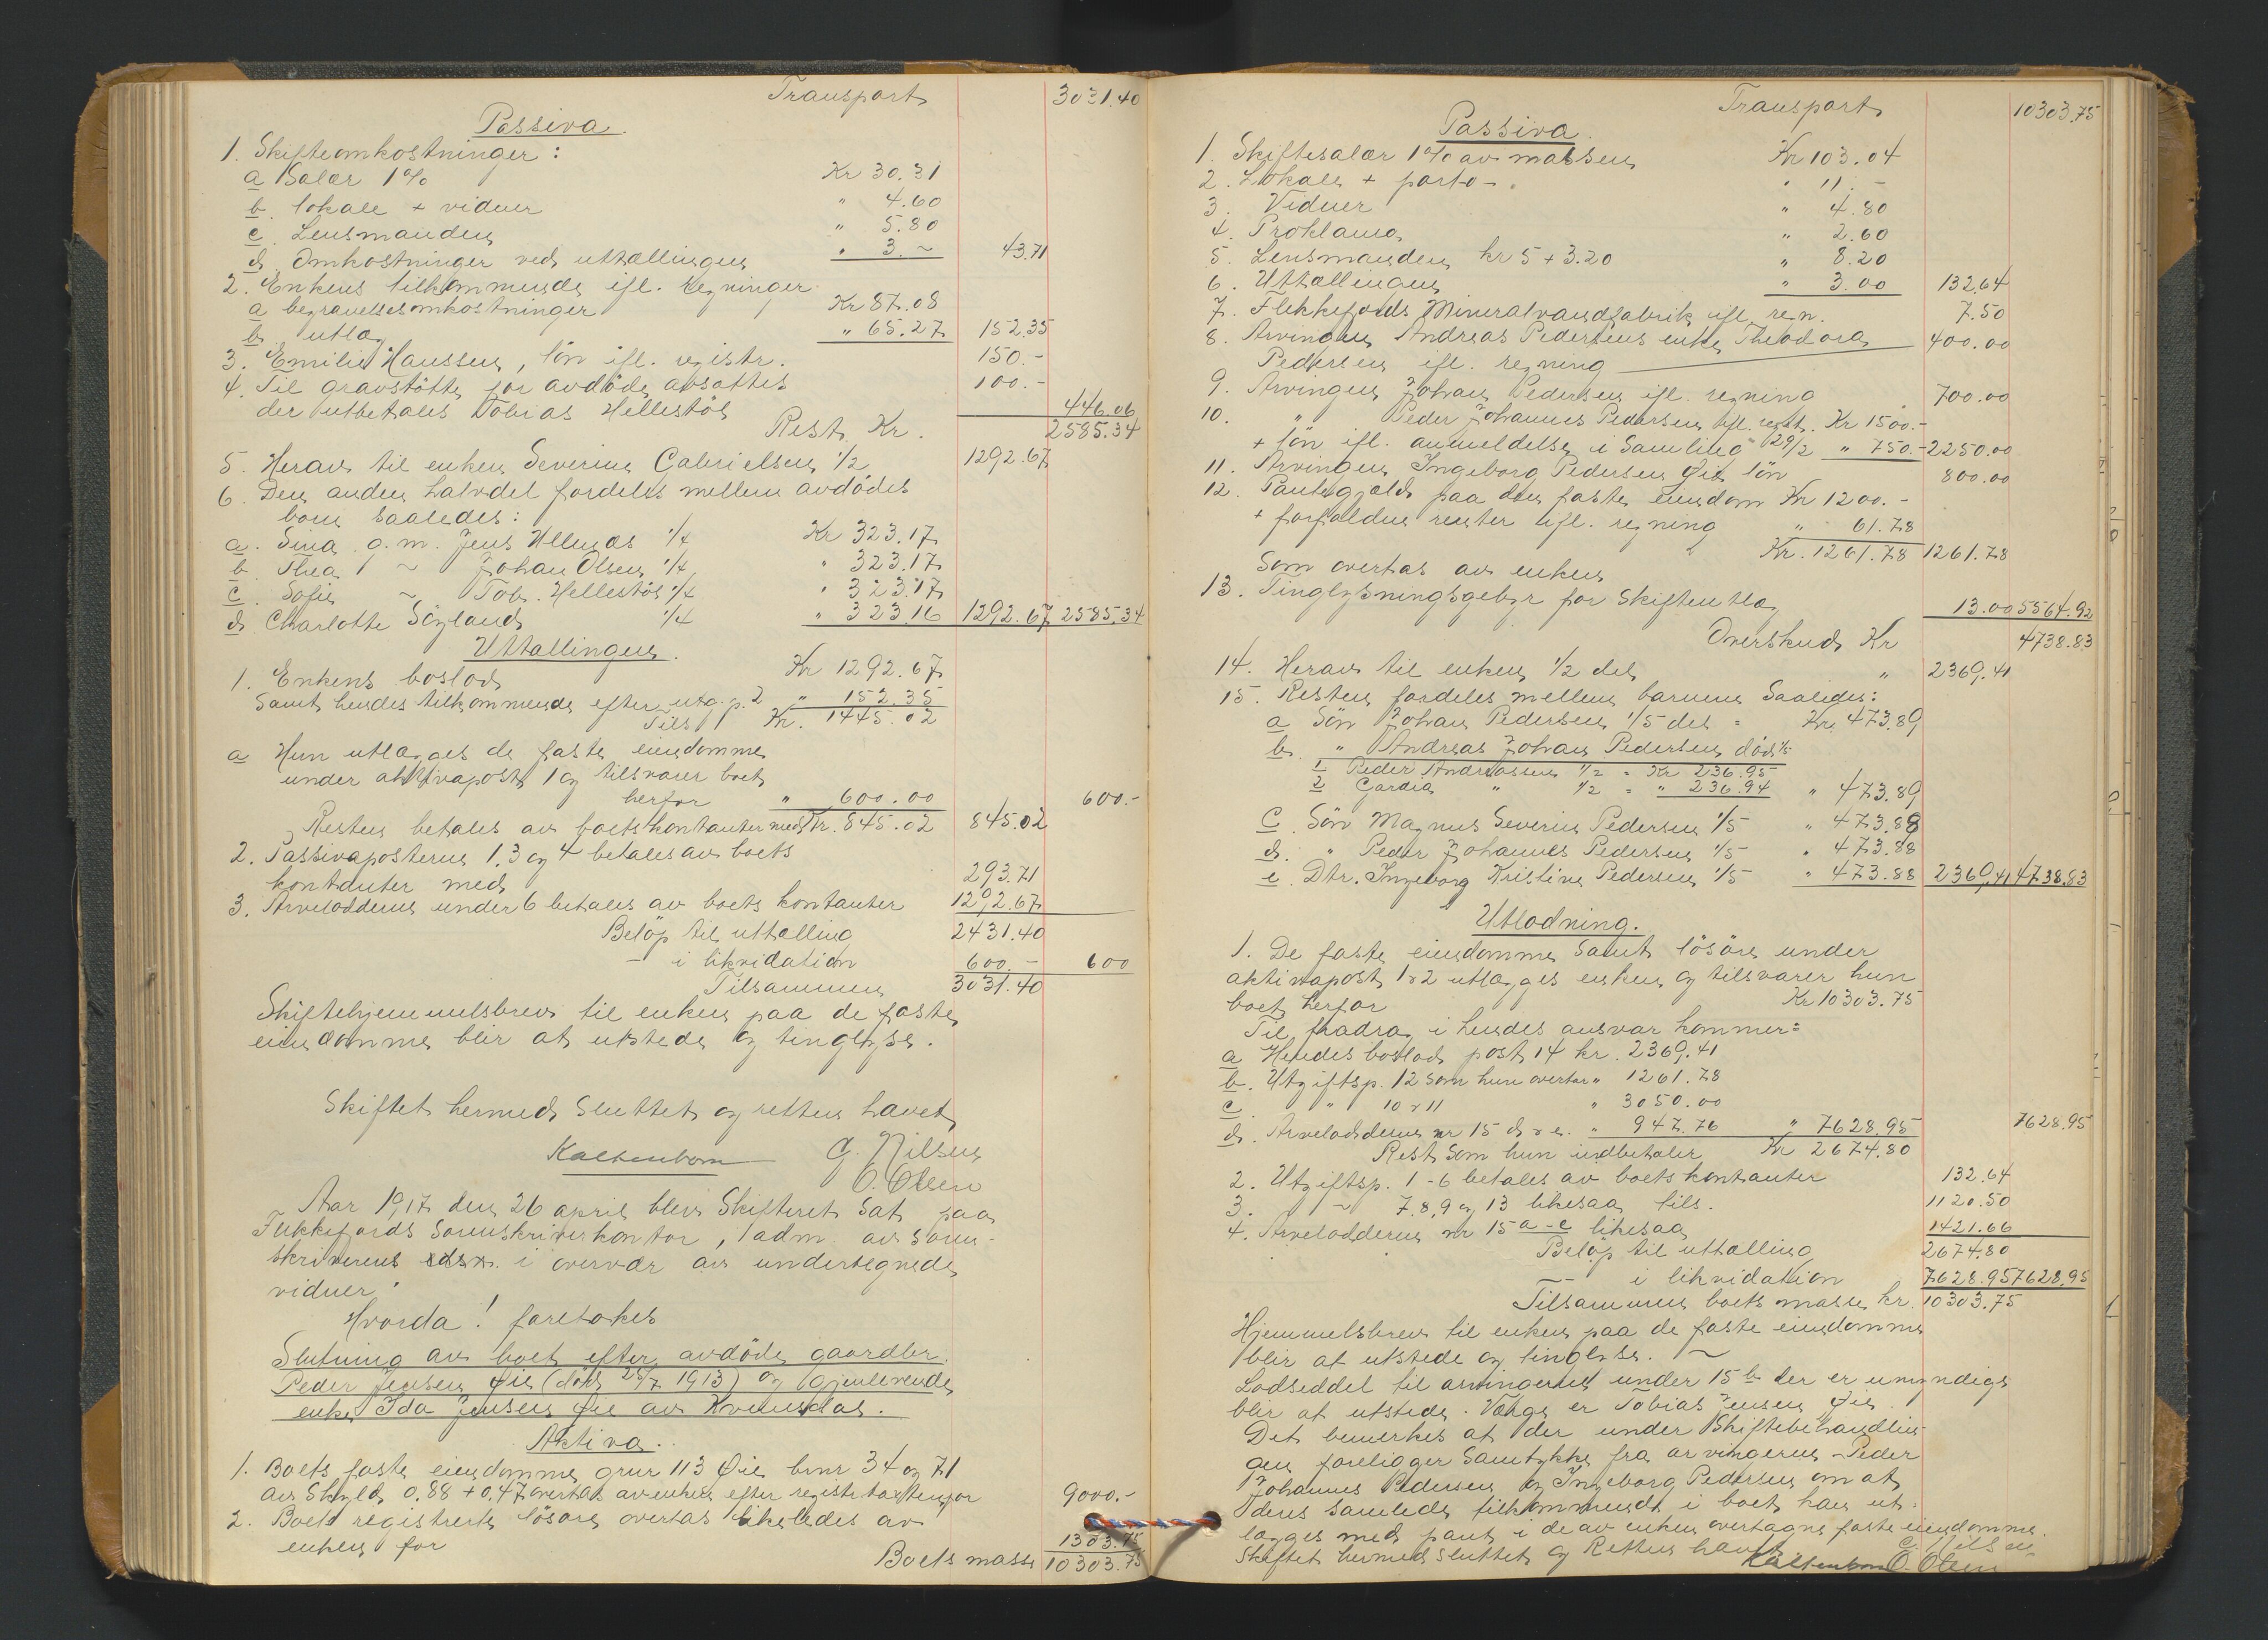 Transport 3031.40
Passiva.
1. Skifteomkostninger:
a Salær 1% Kr 30.31
b. lokale + vidner " 4.60
c. Lensmanden " 5.80
d. Omkostninger ved uttællingen " 3.~ 43.71
2. Enkens tilkommende ifl. regninger
a begravelsesomkostninger Kr 87.08
b. utlæg " 65.27 152.35
3. Emilie Hanssen, lön ifl. registr. 150.-
4. Til gravstötte for avdöde avsattes 100.-
der utbetales Tobias Hellestöl 446.06
Rest Kr. 2585.34
5. Herav til enken Severine Gabrielsen 1/2 1292.67
6. Den anden halvdel fordeles mellem avdödes
born saaledes:
a. Sina g.m. Jens 1/4 Kr 323.17
b. Thea ~ Johan Olsen 1/4 " 323.17
c. Sofie ~ Tob. Hellestöl 1/4 " 323.17
d. Charlotte Söyland 1/4 " 323.16 1292.67 2585.34
Uttællingen.
1. Enkens boslod Kr 1292.67
Samt hendes tilkommende efter utg.p. 2 " 152.35
Tils. Kr. 1445.02
a Hun utlægges de faste eiendomme
under aktivapost 1 og tilsvarer boet
herfor " 600.00 600.-
Resten betales av boets kontanter med Kr. 845.02 845.02
2. Passivaposterne 1.3 og 4 betales av boets
kontanter med 293.71
3. Arvelodderne under 6 betales av boets kontanter 1292.67
Belöp til uttælling 2431.40
- i likvidation 600.- 600
Tilsammen 3031.40
Skiftehjemmelsbrev til enken paa de faste
eiendomme blir at utstede og tinglyse.
Skiftet hermed sluttet og retten hævet
Kaltenborn G. Nilsen
O. Olsen
Aar 1917 den 26 april blev Skifteret sat paa
Flekkefjords Sorenskriverkontor, adm. av soren-
skriverens edsv. i overvær av undertegnede
vidner.
Hvorda! foretokes
Slutning av boet efter avdöde gaardbr.
Peder Jensen Öie (död 28/7 1913) og gjenlevende
enke Ida Jensen Öie av Kvinesdal.
Aktiva.
1. Boets faste eiendomme gnr 113 Öie bnr 34 og 71
av Skyld 0.88 + 0.47 overtas av enken efter registr.taxten for 9000.-
2. Boets registrerte lösöre overtas likeledes av
enken for 1303.75
Boets masse 10303.75
Transport 10303.75
Passiva.
1. Skiftesalær 1% av massen Kr 103.04
2. Lokale + porto - " 11.-
3. Vidner " 4.80
4. Proklama " 2.60
5. Lensmanden kr 5 + 3.20 " 8.20
6. Uttællingen " 3.00 132.64
7. Flekkefjords Mineralvandfabrik ifl. regn. 7.50
8. Arvingen Andreas Pedersens enke Theodora 400.00
Pedersen ifl. regning
9. Arvingen Johan Pedersen ifl. regning 700.00
10. " Peder Johannes Pedersen ifl. regst. Kr 1500.-
+ lön ifl. anmeldelse i Samling 29/2 " 750.- 2250.00
11. Arvingen Ingeborg Pedersen Öie lön 800.00
12. Pantegjæld paa den faste eiendom Kr 1200.-
+ forfaldne renter ifl. regning " 61.78
Kr. 1261.78 1261.78
Som overtas av enken
13. Tinglysningsgebyr for Skifteutlæg 13.00 5564.92
Overskud Kr 4738.83
14. Herav til enken 1/2 del " 2369.41
15. Resten fordeles mellem barnene saaledes:
a Sön Johan Pedersen 1/5 del = Kr. 473.89
b. " Andreas Johan Pedersen död 1/5
1 Peder Andreassen 1/2 = Kr 236.95
2 Gardia " 1/2 = " 236.94 " 473.89
c. Sön Magnus Severin Pedersen 1/5 " 473.88
d. " Peder Johannes Pedersen 1/5 " 473.88
e. Dtr. Ingeborg Kristine Pedersen 1/5 " 473.88 2369,41 4738.83
Utlodning.
1. De faste eiendomme samt lösöre under
aktivapost 1 & 2 utlægges enken og tilsvarer hun
boet herfor Kr 10303.75
Til fradrag i hendes ansvar kommer:
a Hendes boslod post 14 kr. 2369.41
b. Utgiftsp. 12 som hun overtar " 1261.78
c " 10 & 11 " 3050.00
d. Arvelodderne nr 15 d & e. " 947.76 " 7628.95 7628.95
Rest som hun indbetaler Kr 2674.80
2. Utgiftsp. 1-6 betales av boets kontanter 132.64
3. ~ 7.8.9 og 13 likesaa tils. 1120.50
4. Arvelodderne nr 15 a-c likesaa 1421.66
Belöp til uttælling 2674.80
- i likvidation 7628.95 7628.95
Tilsammen boets masse kr. 10303.75
Hjemmelsbrev til enken paa de faste eiendomme
blir at utstede og tinglyse. ~
Lodseddel til arvingerne under 15 b der er umyndige
blir at utstede. Værge er Tobias Jensen Öie.
Det bemerkes at der under Skiftebehandlin-
gen foreligger Samtykke fra arvingerne Peder
Johannes Pedersen og Ingeborg Pedersen om at
deres samlede tilkommende i boet kan ut-
lægges med pant i de av enken overtagne faste eiendomme.
Skiftet hermed sluttet og Retten hævet. G. Nilsen
Kaltenborn O. Olsen